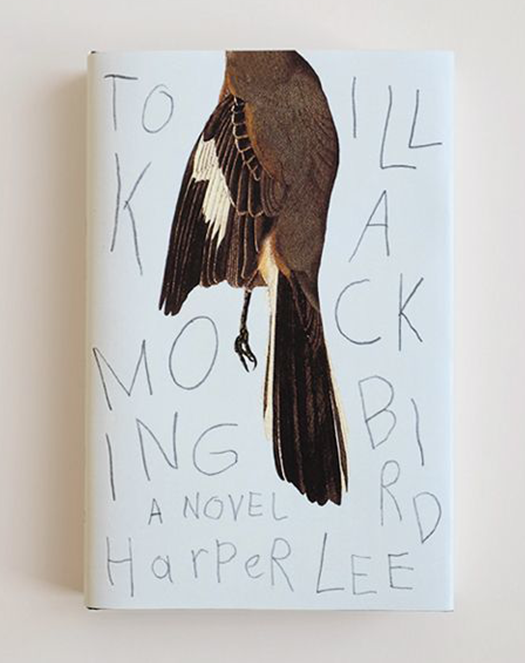 TO K ILL
A
MO CK
ING BI
RD
A NOVEL
HarPeR LEE